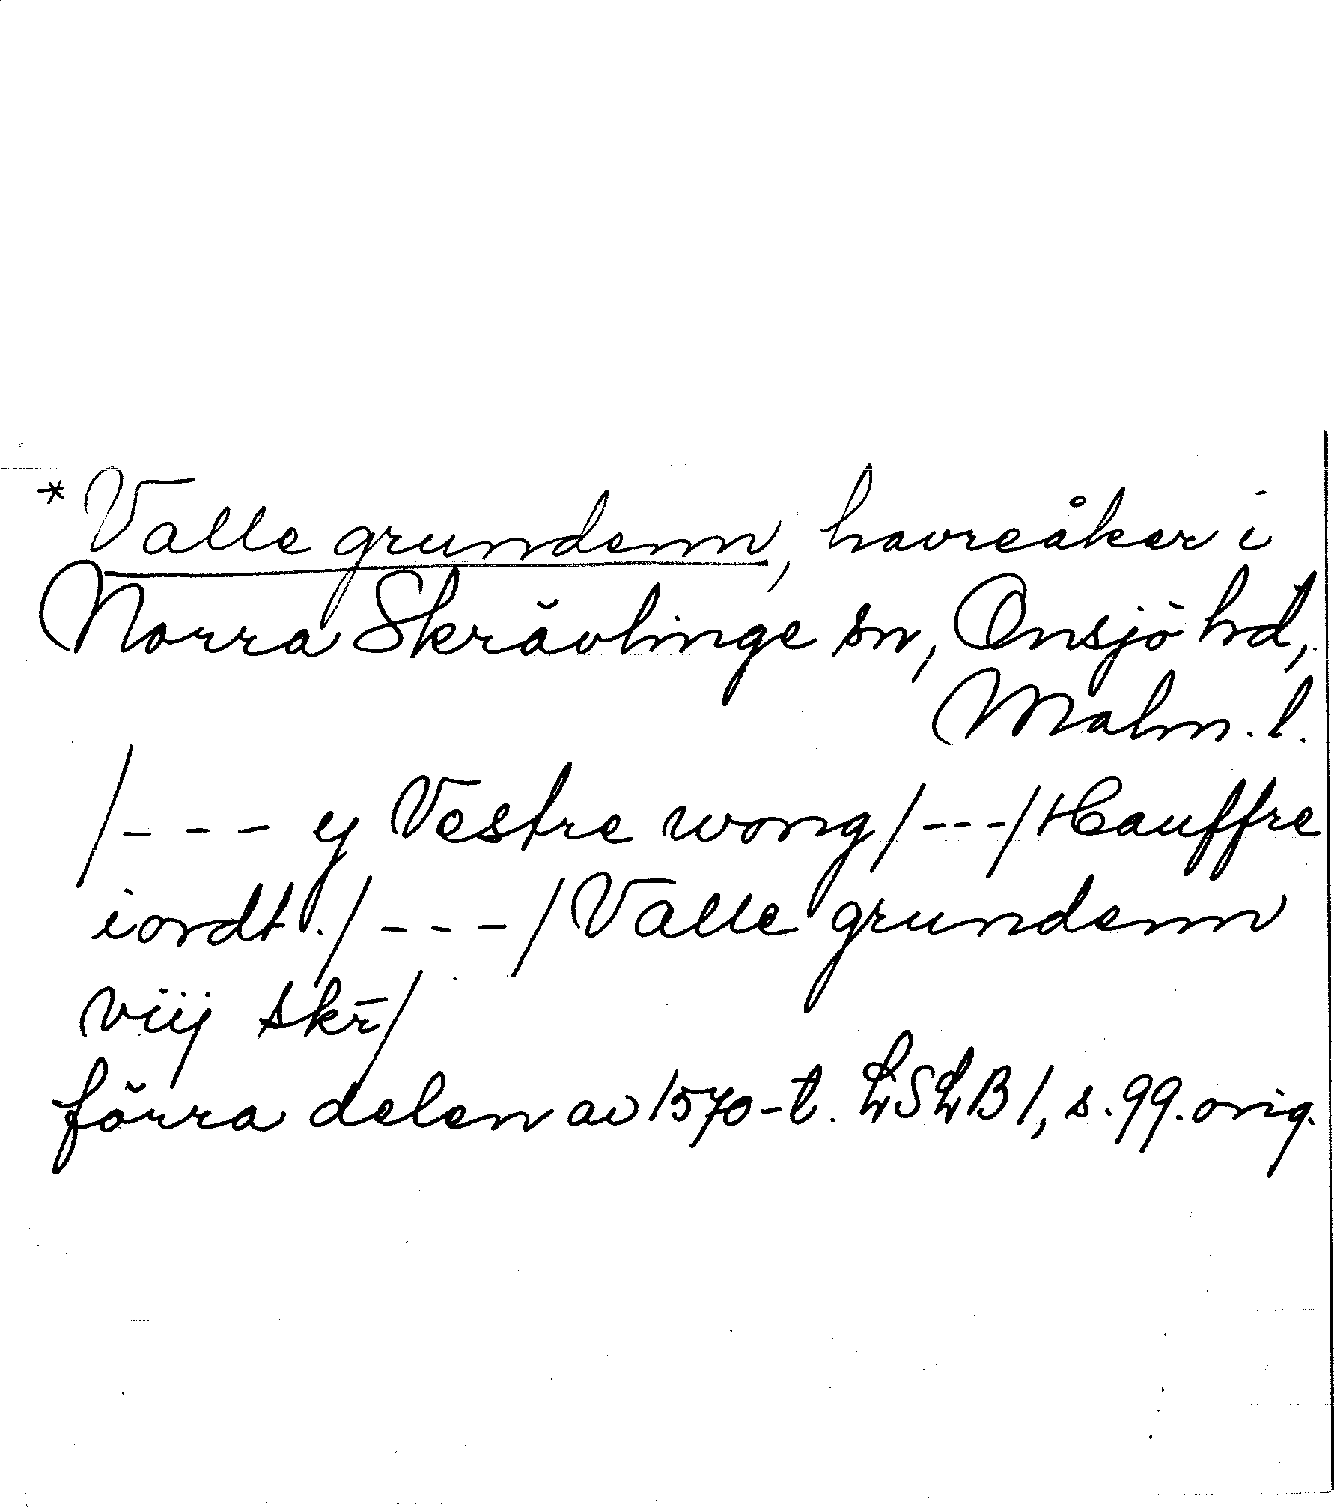 * Valle grundenn, havreåker i
Norra Skrävlinge sn, Onsjö hd,
Malm. l.
/--- y Vestre wong/---/Hauffre
iordt./---/Valle grundenn
viij skr/
förra delen av 1570-t. LSLB 1, s. 99. orig.